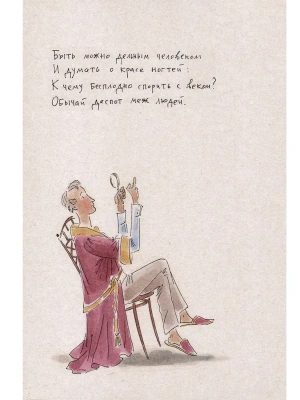 Быть можно дельным человеком
И думать о красе ногтей:
К чему бесплодно спорить с веком?
Обычай деспот меж людей.